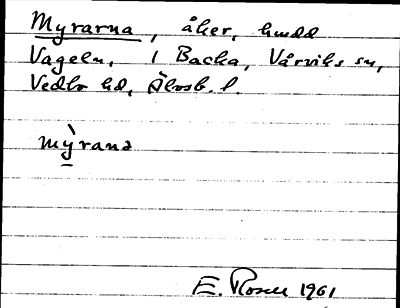 Myrarna, åker, hmdd
Vageln, 1 Backa, Vårviks sn,
Vedbo hd, Älvsb. l.
mỳrana
E. Rosell 1961